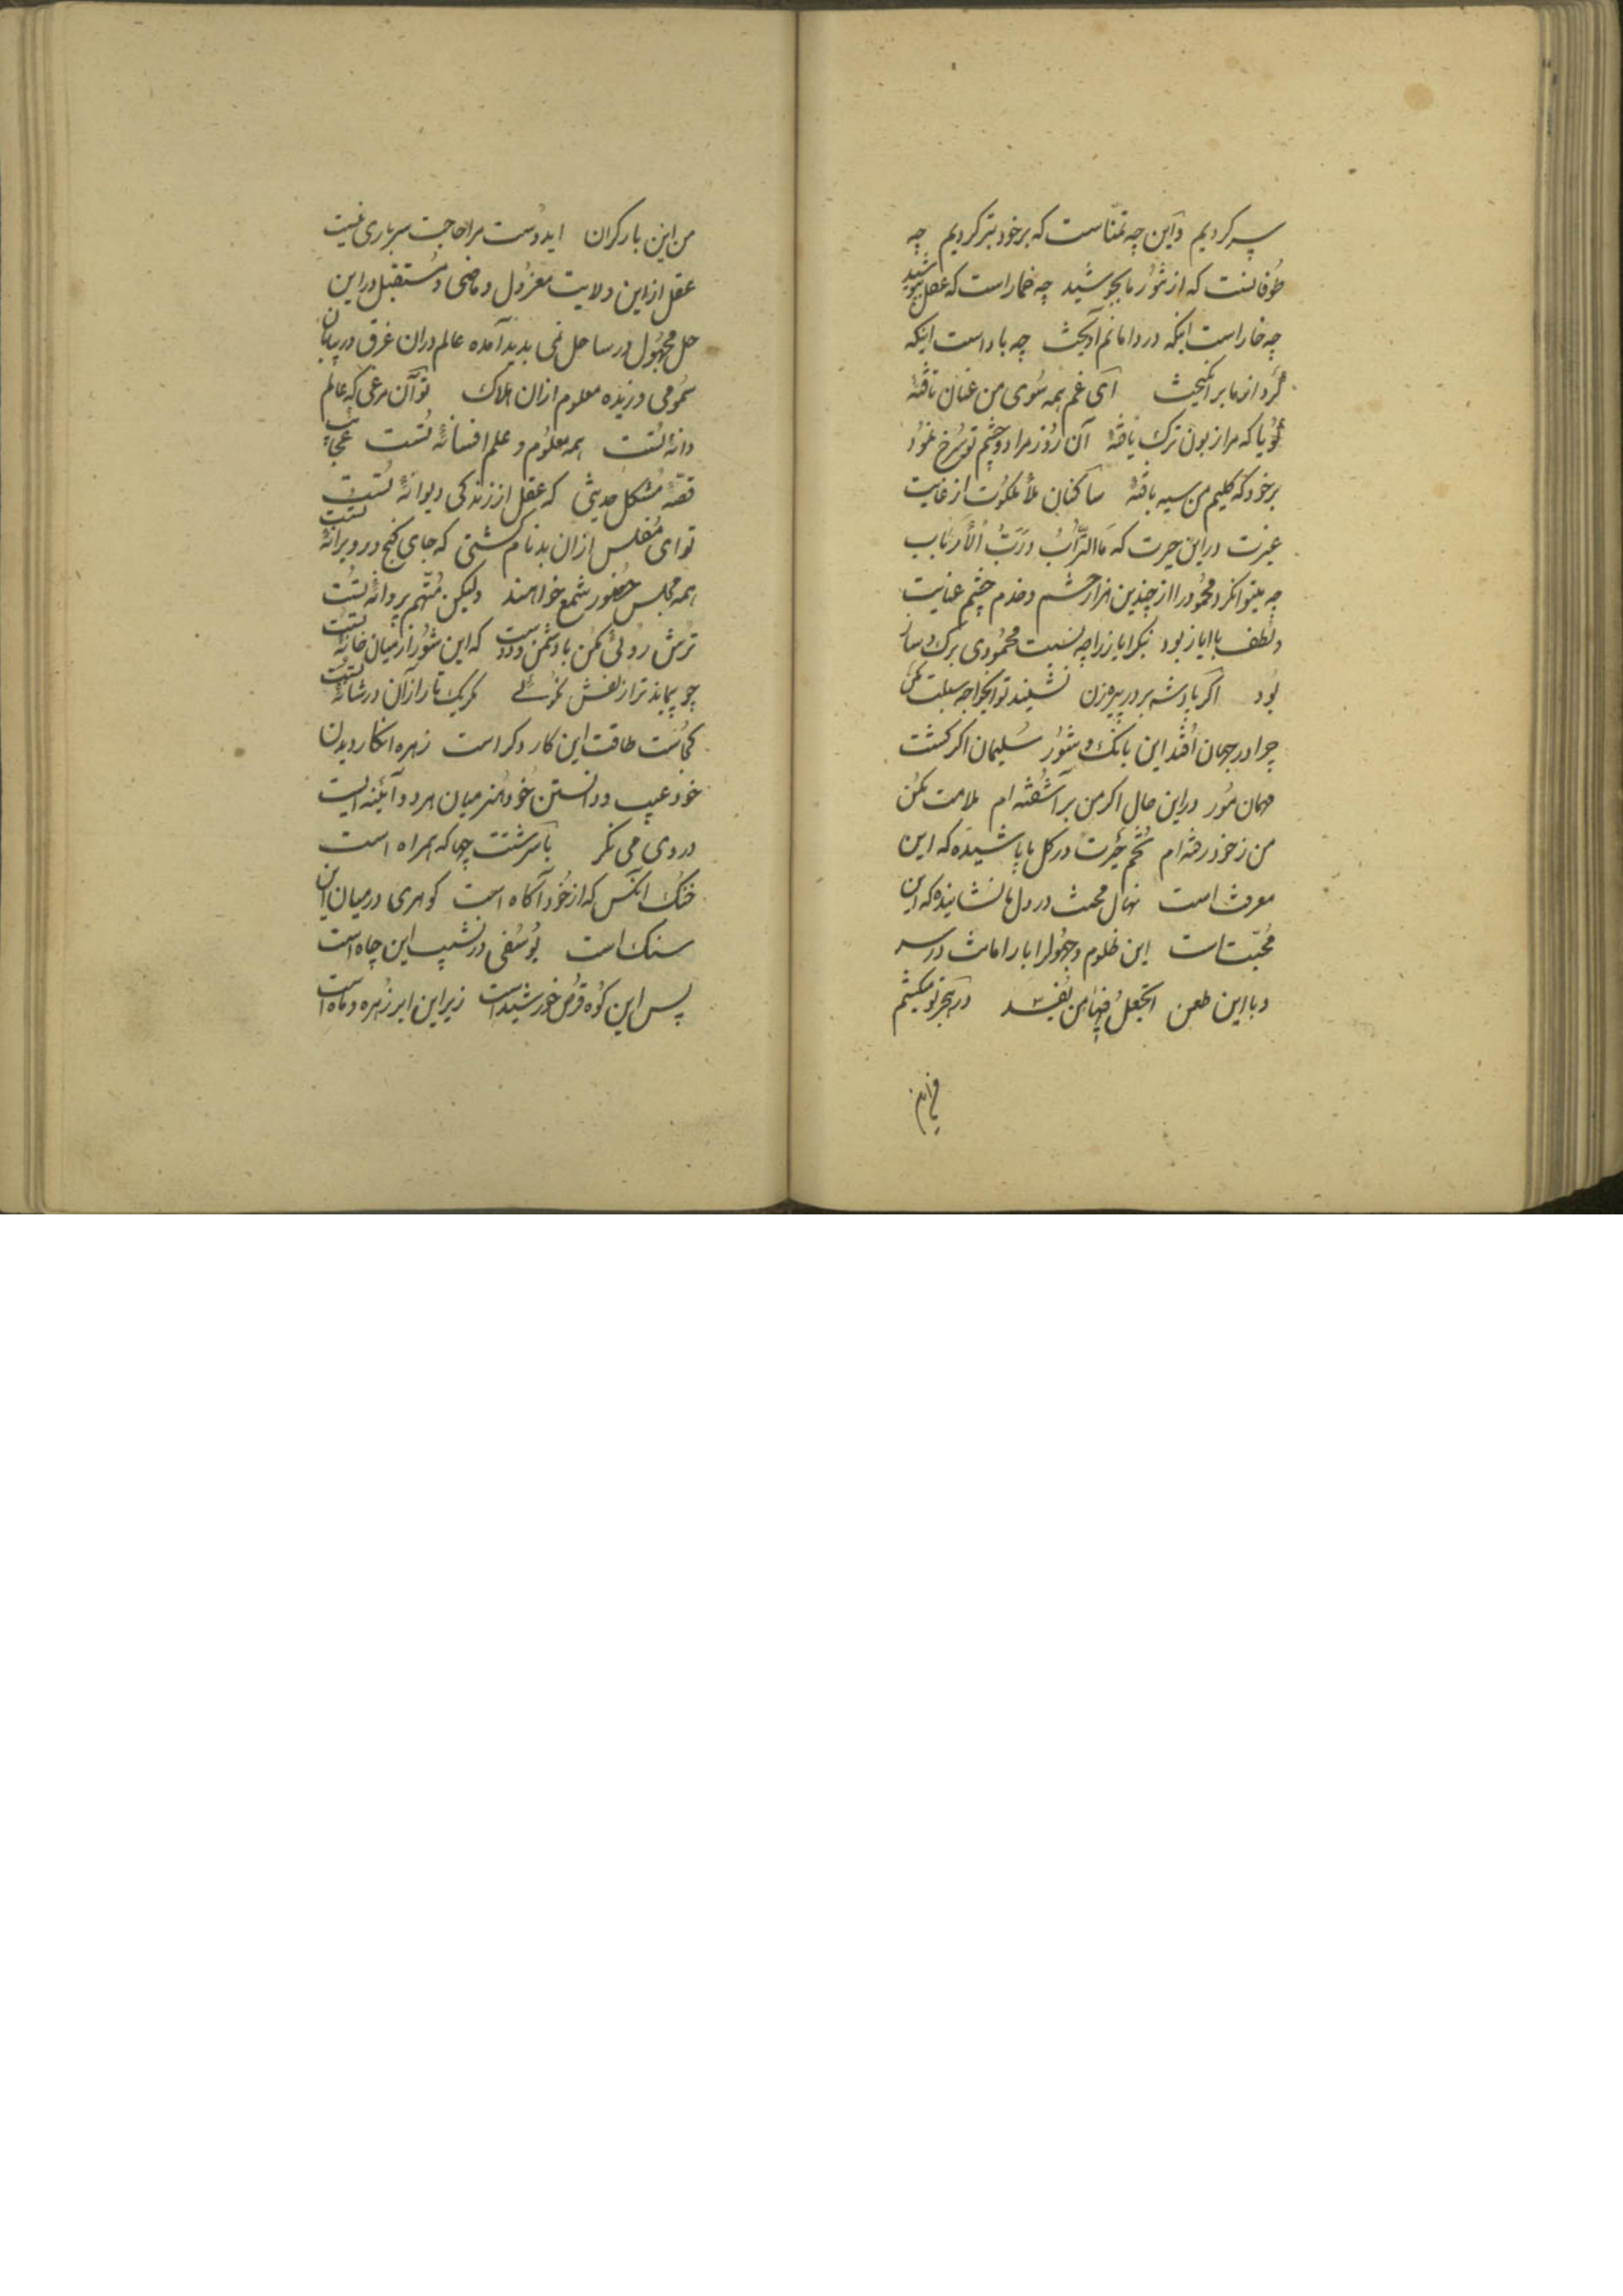 سپر کردیم و این چه تمنّاست که بر خود تبر کردیم چه
طوفانست که از شور ما بجوشید چه خمار است که عقل بپوشید
چه خار است اینکه در دامانم آویخت چه باد است اینکه
گرد از ما برانگیخت ای غم همه سوی من عنان تافتهٔ
گویا که مرا زبون ترک یافتهٔ آن روز مرا دو چشم تو سرخ نمود
بر خود که گلیم من سیه بافتهٔ ساکنان ملأ ملکوت از غایت
غیرت در این حیرت که مَا التُّرابُ وَ رَبُّ الْأَرباب
چه بینوا نکرد محمود را از چندین هزار حشم و خدم چشم عنایت
و لطف با ایاز بود بنگر ایاز را چه نسبت محمودی برگ و ساز
بود اگر پادشه بر در پیرزن نشیند تو ایخواجه سبلت مکن
چرا در جهان افتد این بانگ و شور سلیمان اگر گشت
مهمان مور در این حال اگر من بر آشفته ام ملامت مکن
من ز خود رفته ام تخم حیرت در گل ما پاشیده که این
معرفت است نهال محبت در دل ها نشانیده که این
محبّت است این ظلوم و جهول را بار امانت در سر
و با این طعن اتجعل فیها من یفسد در هجر تو میکشم
من این بار گران ایدوست مرا حاجت سرباری نیست
عقل از این ولایت معزول و ماضی و مستقبل در این
حل مجهول در ساحل نمی بدید آمده عالم در ان غرق در بیابان
سمومی وزیده معلوم از ان هلاک تو آن مرغی که عالم
دانهٔ تست همه معلوم و علم افسانهٔ تست عجایب
قصّهٔ مشکل حدیثی که عقل از زندگی دیوانهٔ تست
تو ای مفلس از ان بدنام گشتی که جای گنج در ویرانهٔ تست
همه مجلس حضور شمع خواهند ولیکن متّهم پروانهٔ تست
ترش روئی مکن با دشمن و دوست که این شور از میان خانهٔ تست
چو پیماید ترا زلفش نگوئی که یک تار از آن در شانهٔ تست
کجاست طاقت این کار و کراست زهره انکار دیدن
خود عیب و دانستن خود هنر میان هر دو آئینه ایست
در وی می نگر با سرشتت چها که همراه است
خنک آنکس که از خود آگاه است گوهری در میان این
سنگ است یوسفی در نشیب این چاه است
پس این کوه قرص خورشید است زیر این ابر زهره و ماه است